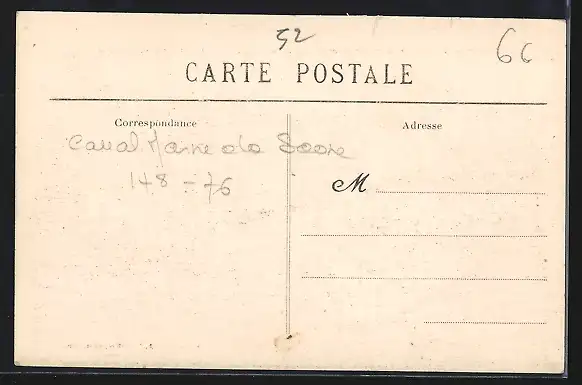 52
6c
CARTE POSTALE
Correspondance
Adresse
Canal Marne à la Saone
148-76
M